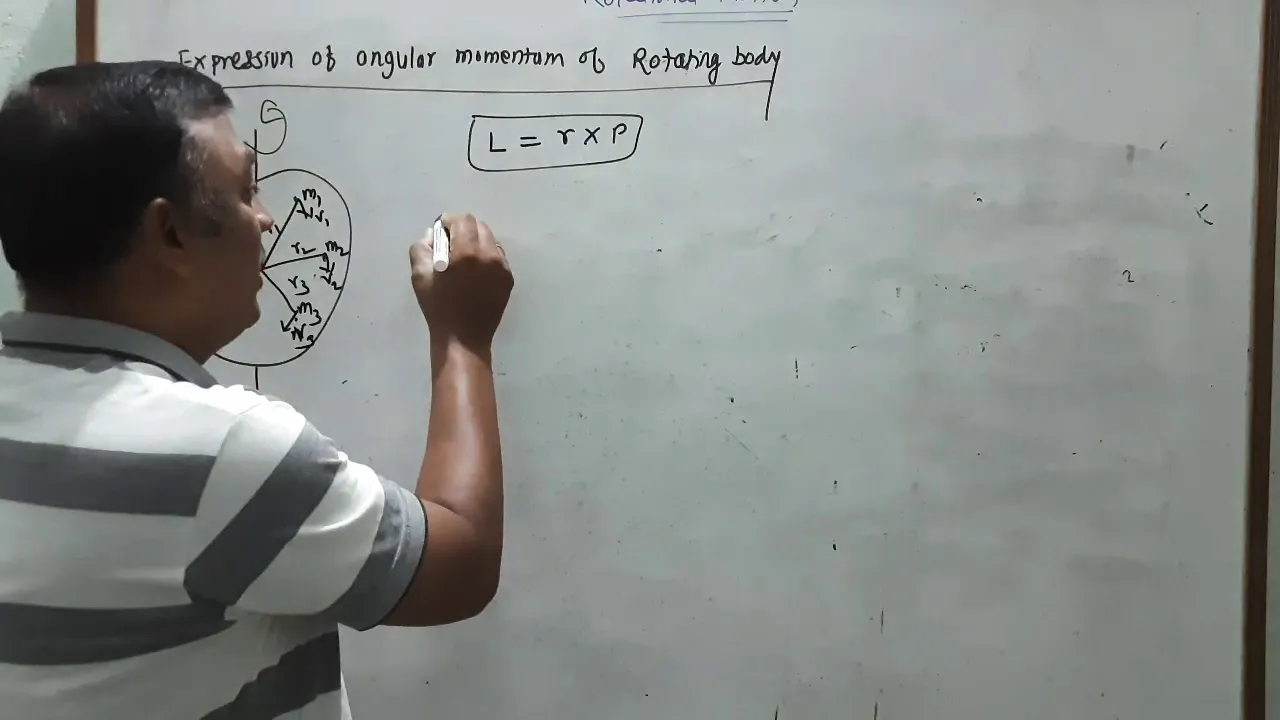 Expression of angular momentum of Rotating body
L = r X P
m1
v1
r2 m2
v2
r3
m3
v3
2